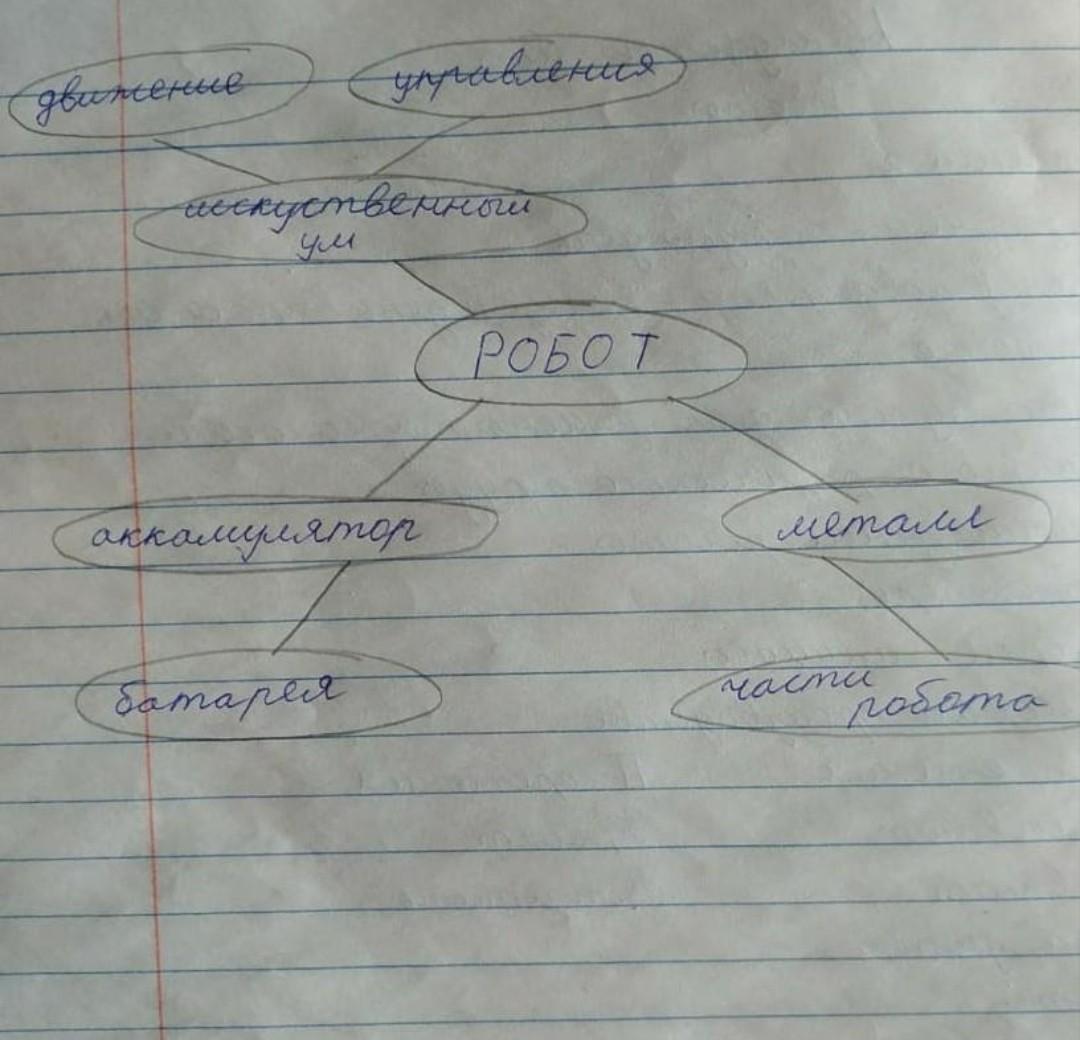 движение
управления
искуственный
ум
РОБОТ
аккамулятор
металл
батарея
части
робота